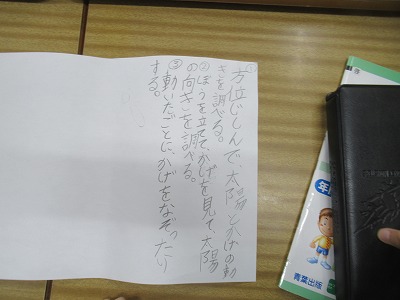 ①方位じしんで、太陽とかげの動
きを調べる。
②ぼうを立てて、かげを見て、太陽
の向きを調べる。
③動いたごとに、かげをなぞったり
する。
青葉出版